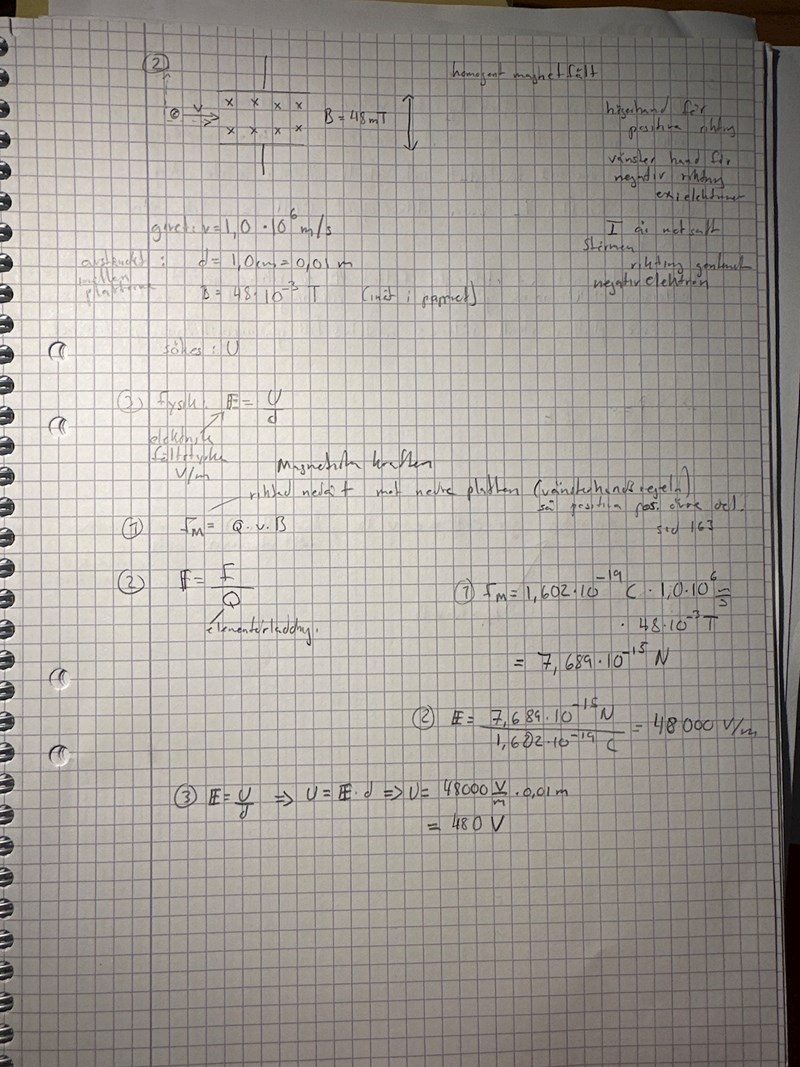 ② homogent magnetfält
v x x x x B = 48mT
x x x x
högerhand för
positiva riktnig
vänster hand för
negativ riktnig
ex; elektroner
givet: v = 1,0 · 10⁶ m/s
I är motsatt
Strömen
riktnig gentemot
negativ elektron
avståndet mellan plattorna : d = 1,0cm = 0,01 m
B = 48 · 10⁻³ T (inåt i pappret)
sökes : U
③ fysik: E = U/d
elektrisk
fältstyrka
V/m
Magnetiska kraften
riktad nedåt mot nedre platten (vänsterhandsregeln)
så positiva pos. övre del.
sid 163
① F_M = Q · v · B
② E = F/Q
elementarladdnig.
① F_M = 1,602 · 10⁻¹⁹ C · 1,0 · 10⁶ m/s
· 48 · 10⁻³ T
= 7,689 · 10⁻¹⁵ N
② E = 7,689 · 10⁻¹⁵ N / 1,602 · 10⁻¹⁹ C = 48000 V/m
③ E = U/d ⇒ U = E · d ⇒ U = 48000 V/m · 0,01 m
= 480 V